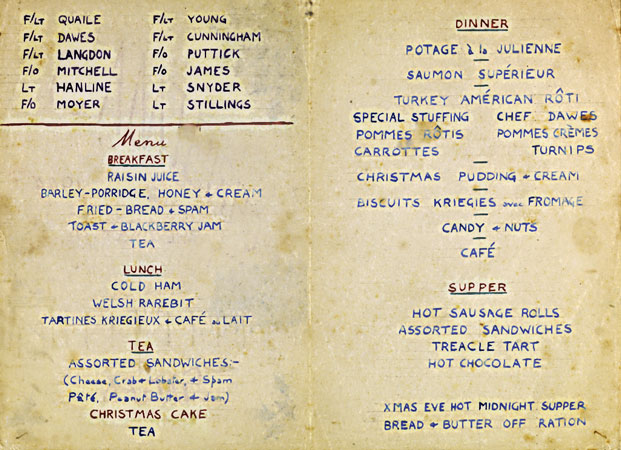 F/LT QUAILE F/LT YOUNG
F/LT DAWES F/LT CUNNINGHAM
F/LT LANGDON F/O PUTTICK
F/O MITCHELL F/O JAMES
LT HANLINE LT SNYDER
F/O MOYER LT STILLINGS
Menu
BREAKFAST
RAISIN JUICE
BARLEY-PORRIDGE, HONEY + CREAM
FRIED-BREAD + SPAM
TOAST + BLACKBERRY JAM
TEA
LUNCH
COLD HAM
WELSH RAREBIT
TARTINES KRIEGIEUX + CAFÉ au LAIT
TEA
ASSORTED SANDWICHES:-
(Cheese, Crab + Lobster, + Spam
Pâté, Peanut Butter + Jam)
CHRISTMAS CAKE
TEA
DINNER
POTAGE à la JULIENNE
SAUMON SUPÉRIEUR
TURKEY AMÉRICAN RÔTI
SPECIAL STUFFING CHEF DAWES
POMMES RÔTIS POMMES CRÈMES
CARROTTES TURNIPS
CHRISTMAS PUDDING + CREAM
BISCUITS KRIEGIES avec FROMAGE
CANDY + NUTS
CAFÉ
SUPPER
HOT SAUSAGE ROLLS
ASSORTED SANDWICHES
TREACLE TART
HOT CHOCOLATE
XMAS EVE HOT MIDNIGHT SUPPER
BREAD + BUTTER OFF RATION